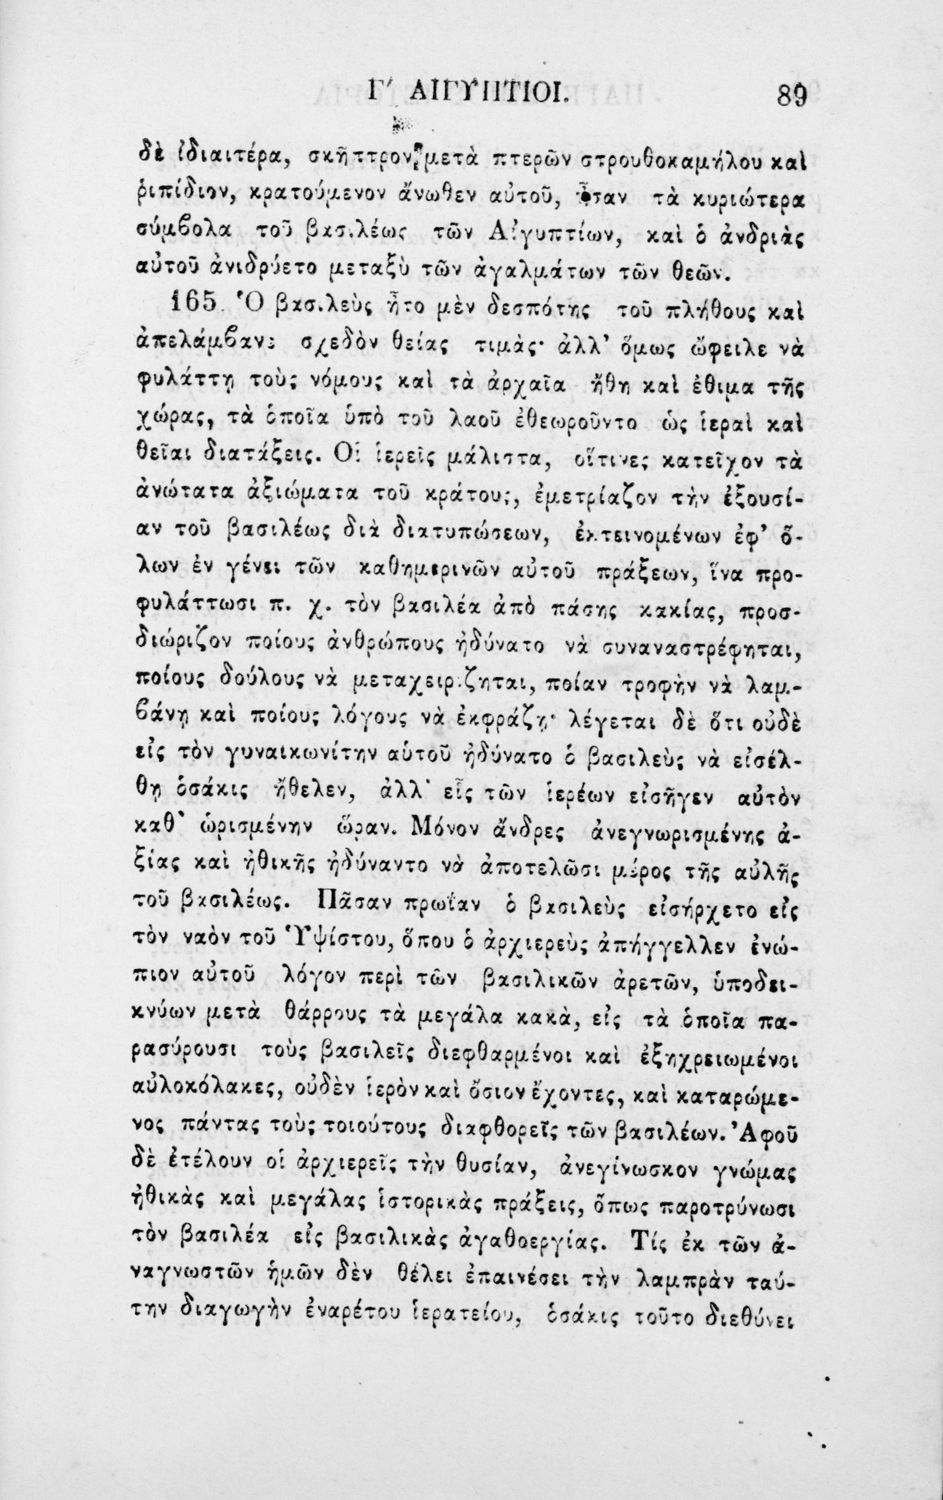 Γ′ ΑΙΓΥΠΤΙΟΙ. 89
δὲ ἰδιαιτέρα, σκῆπτρον μετὰ πτερῶν στρουθοκαμήλου καὶ
ῥιπίδιον, κρατούμενον ἄνωθεν αὐτοῦ, ἦσαν τὰ κυριώτερα
σύμβολα τοῦ βασιλέως τῶν Αἰγυπτίων, καὶ ὁ ἀνδριὰς
αὐτοῦ ἀνιδρύετο μεταξὺ τῶν ἀγαλμάτων τῶν θεῶν.
165. Ὁ βασιλεὺς ἦτο μὲν δεσπότης τοῦ πλήθους καὶ
ἀπελάμβανε σχεδὸν θείας τιμὰς· ἀλλ’ ὅμως ὤφειλε νὰ
φυλάττῃ τοὺς νόμους καὶ τὰ ἀρχαῖα ἤθη καὶ ἔθιμα τῆς
χώρας, τὰ ὁποῖα ὑπὸ τοῦ λαοῦ ἐθεωροῦντο ὡς ἱεραὶ καὶ
θεῖαι διατάξεις. Οἱ ἱερεῖς μάλιστα, οἵτινες κατεῖχον τὰ
ἀνώτατα ἀξιώματα τοῦ κράτους, ἐμετρίαζον τὴν ἐξουσί-
αν τοῦ βασιλέως διὰ διατυπώσεων, ἐκτεινομένων ἐφ’ ὅ-
λων ἐν γένει τῶν καθημερινῶν αὐτοῦ πράξεων, ἵνα προ-
φυλάττωσι π. χ. τὸν βασιλέα ἀπὸ πάσης κακίας, προσ-
διώριζον ποίους ἀνθρώπους ἠδύνατο νὰ συναναστρέφηται,
ποίους δούλους νὰ μεταχειρίζηται, ποίαν τροφὴν νὰ λαμ-
βάνῃ καὶ ποίους λόγους νὰ ἐκφράζῃ· λέγεται δὲ ὅτι οὐδὲ
εἰς τὸν γυναικωνίτην αὑτοῦ ἠδύνατο ὁ βασιλεὺς νὰ εἰσέλ-
θῃ ὁσάκις ἤθελεν, ἀλλ’ εἷς τῶν ἱερέων εἰσῆγεν αὐτὸν
καθ’ ὡρισμένην ὥραν. Μόνον ἄνδρες ἀνεγνωρισμένης ἀ-
ξίας καὶ ἠθικῆς ἠδύναντο νὰ ἀποτελῶσι μέρος τῆς αὐλῆς
τοῦ βασιλέως. Πᾶσαν πρωΐαν ὁ βασιλεὺς εἰσήρχετο εἰς
τὸν ναὸν τοῦ Ὑψίστου, ὅπου ὁ ἀρχιερεὺς ἀπήγγελλεν ἐνώ-
πιον αὐτοῦ λόγον περὶ τῶν βασιλικῶν ἀρετῶν, ὑποδει-
κνύων μετὰ θάρρους τὰ μεγάλα κακὰ, εἰς τὰ ὁποῖα πα-
ρασύρουσι τοὺς βασιλεῖς διεφθαρμένοι καὶ ἐξηχρειωμένοι
αὐλοκόλακες, οὐδὲν ἱερὸν καὶ ὅσιον ἔχοντες, καὶ καταρώμε-
νος πάντας τοὺς τοιούτους διαφθορεῖς τῶν βασιλέων. Ἀφοῦ
δὲ ἐτέλουν οἱ ἀρχιερεῖς τὴν θυσίαν, ἀνεγίνωσκον γνώμας
ἠθικὰς καὶ μεγάλας ἱστορικὰς πράξεις, ὅπως παροτρύνωσι
τὸν βασιλέα εἰς βασιλικὰς ἀγαθοεργίας. Τίς ἐκ τῶν ἀ-
ναγνωστῶν ἡμῶν δὲν θέλει ἐπαινέσει τὴν λαμπρὰν ταύ-
την διαγωγὴν ἐναρέτου ἱερατείου, ὁσάκις τοῦτο διεθύνει